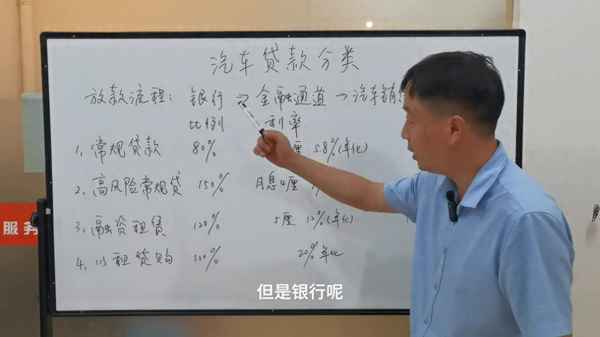 汽车贷款分类
放款流程: 银行 → 金融通道 → 汽车销
比例 利率
1、常规贷款 80% 厘 58%(年化)
2、高风险常规贷 150% 月息4厘
3、融资租赁 120% 5厘 12%(年化)
4、以租贷购 20%年化
服务
但是银行呢